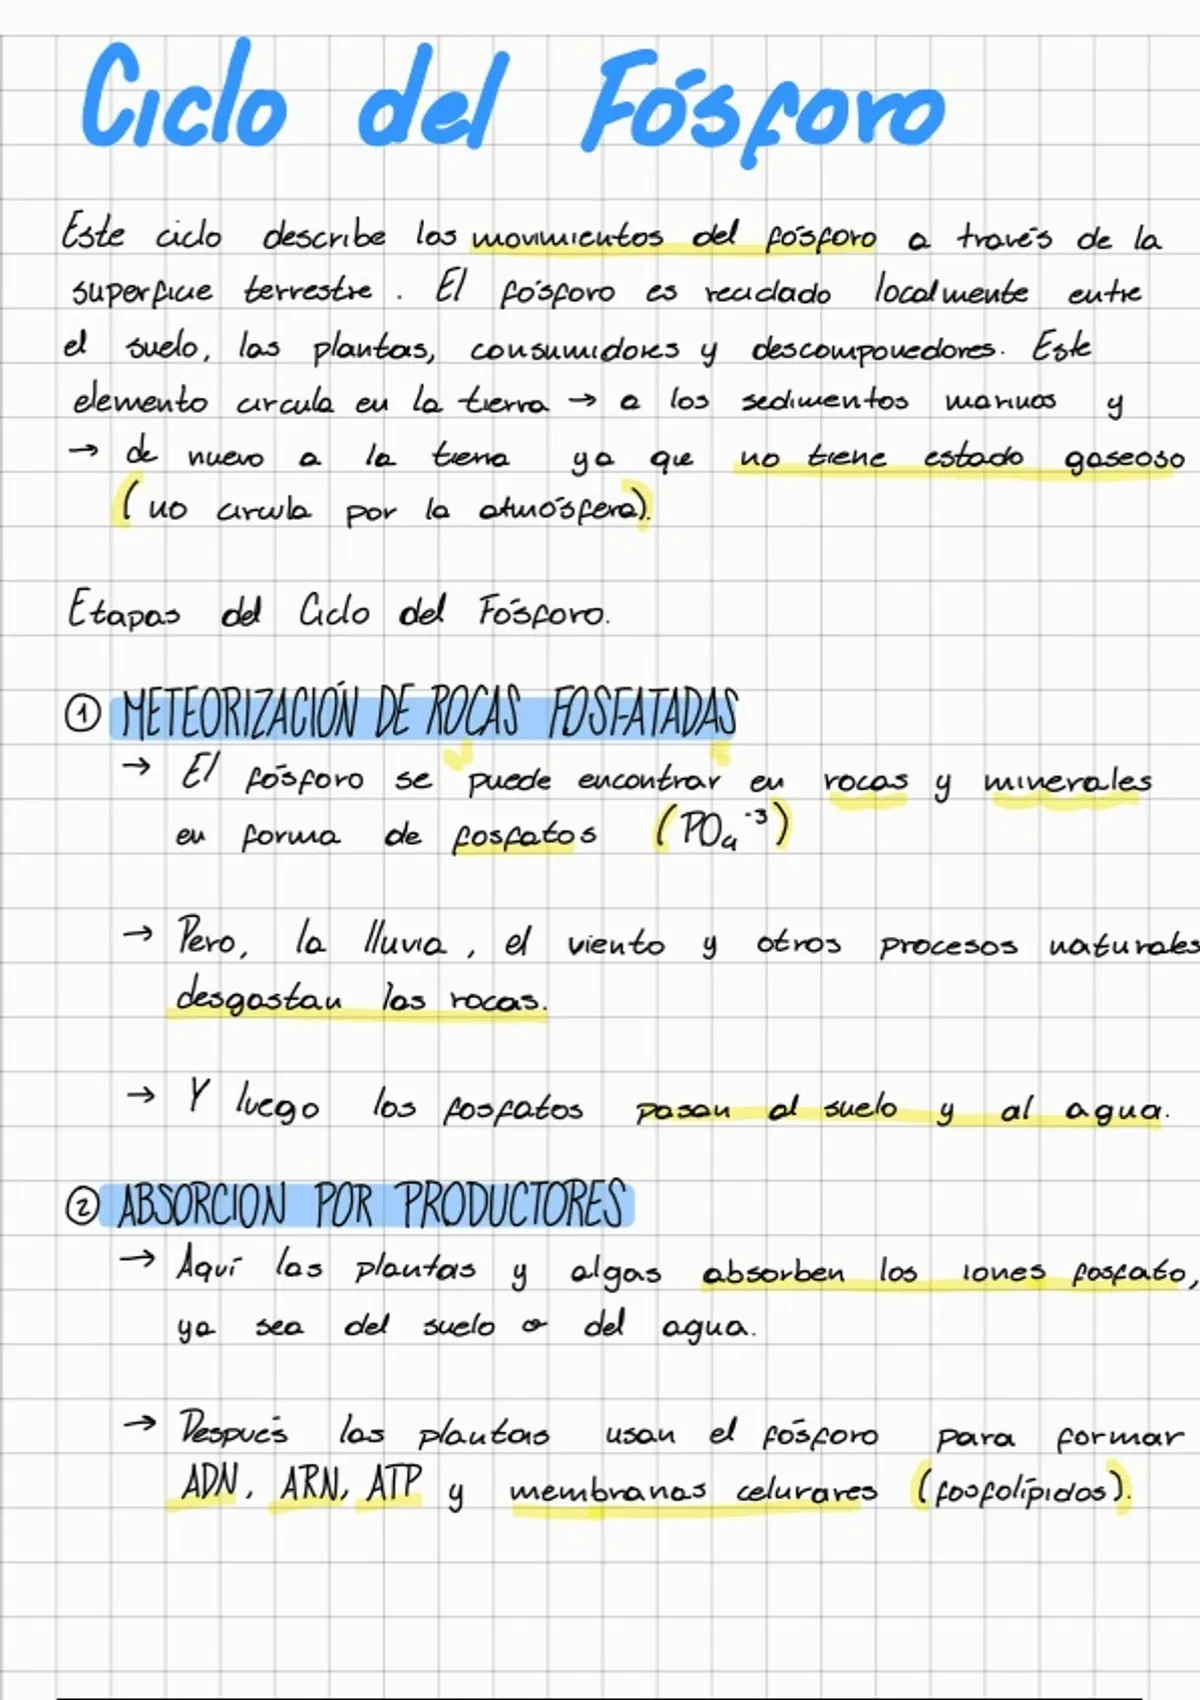 Ciclo del Fósforo
Este ciclo describe los movimientos del fósforo a través de la
superficie terrestre. El fósforo es reciclado localmente entre
el suelo, las plantas, consumidores y descomponedores. Este
elemento circula en la tierra → a los sedimentos marinos y
→ de nuevo a la tierra ya que no tiene estado gaseoso
(no circula por la atmósfera).
Etapas del Ciclo del Fósforo.
① METEORIZACIÓN DE ROCAS FOSFATADAS
→ El fósforo se puede encontrar en rocas y minerales
en forma de fosfatos (PO₄⁻³)
→ Pero, la lluvia, el viento y otros procesos naturales
desgastan las rocas.
→ Y luego los fosfatos pasan al suelo y al agua.
② ABSORCION POR PRODUCTORES
→ Aquí las plantas y algas absorben los iones fosfato,
ya sea del suelo o del agua.
→ Después las plantas usan el fósforo para formar
ADN, ARN, ATP y membranas celurares (fosfolípidos).